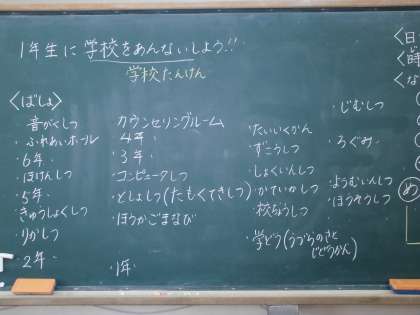 1年生に学校をあんないしよう!!
学校たんけん
<ばしょ>
音がくしつ
・ふれあいホール
・6年・
・ほけんしつ
・5年・
・きゅうしょくしつ
・りかしつ
・2年・
カウンセリングルーム
・4年・
・3年・
・コンピュータしつ
・としょしつ(たもくてきしつ)
・ほうかごまなび
・1年・
・たいいくかん
・ずこうしつ
・しょくいんしつ
・かていかしつ
・校ちょうしつ
・学どう(うづらのさと
じどうかん)
・じむしつ
・ろぐみ・
・ようむいんしつ
・ほうそうしつ
<日
<時
<な
め